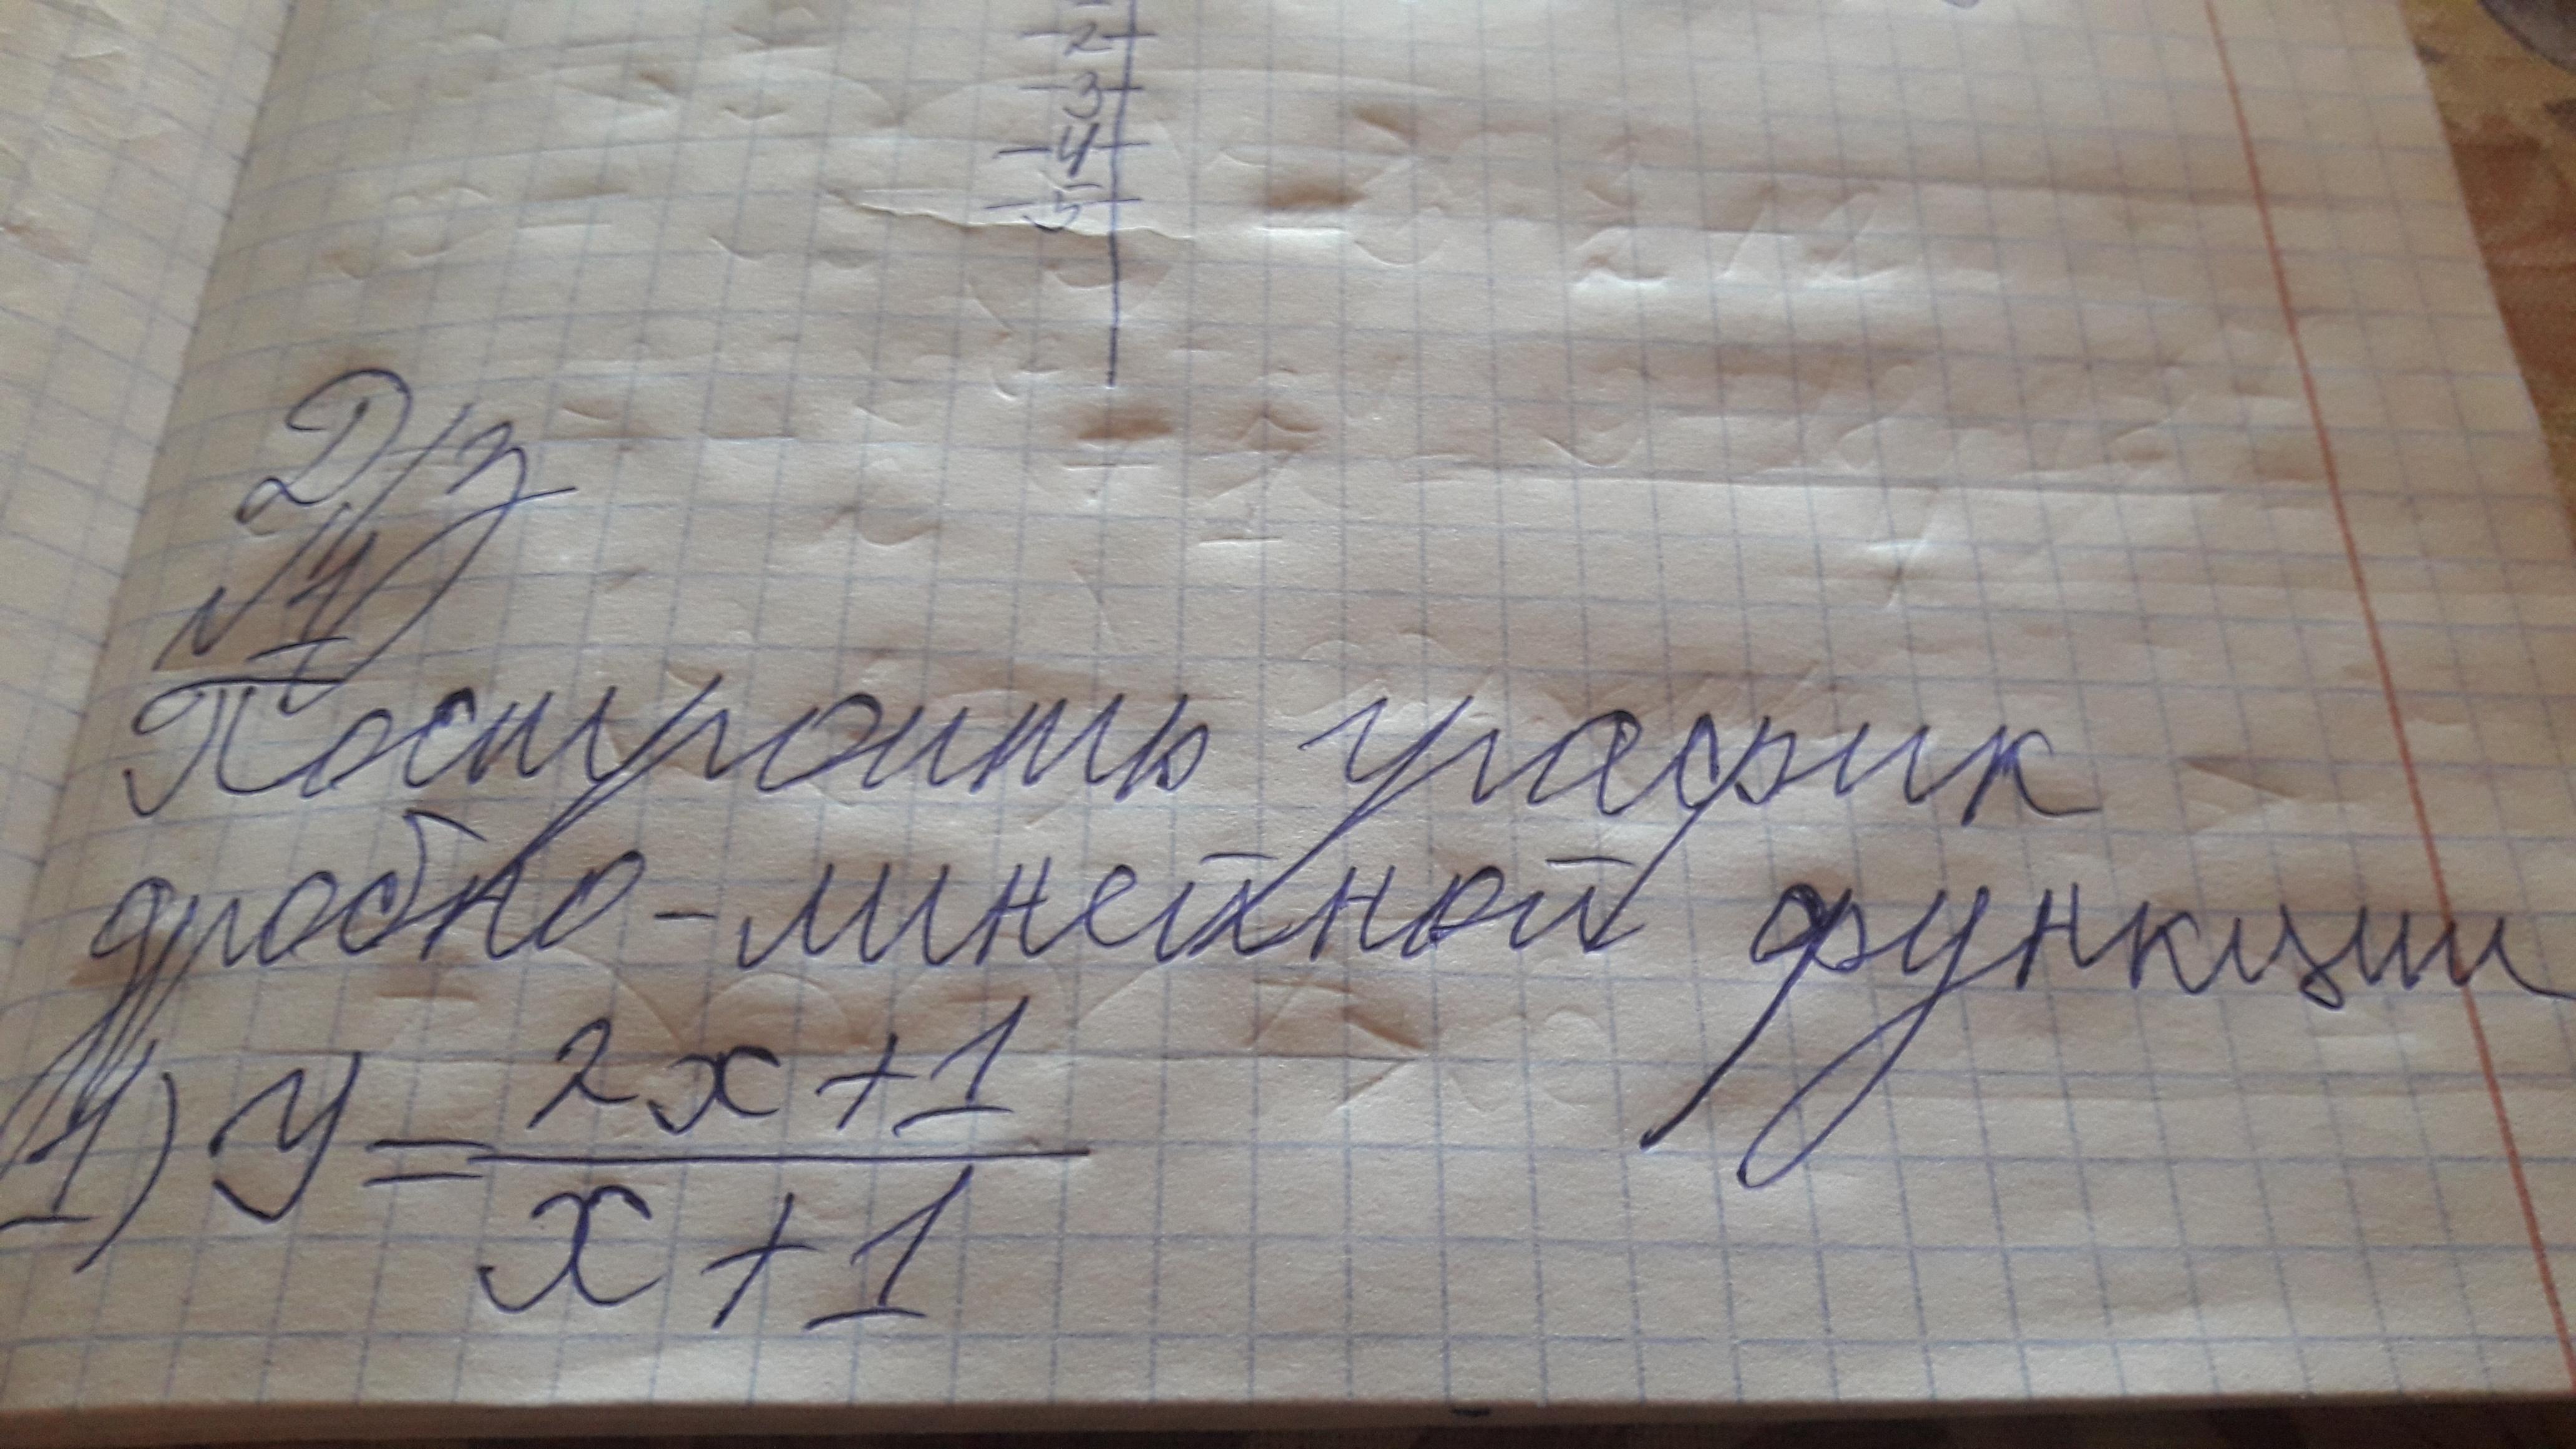 -2
-3
-4
-5
Д/з
№1
Построить график
дробно-линейной функции
1) y = 2x+1
x+1